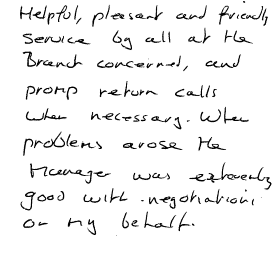 Helpful, pleasant and friendly
service by all at the
Branch concerned, and
promp return calls
when necessary. When
problems arose the
Manager was extremely
good with negotiations
on my behalf.